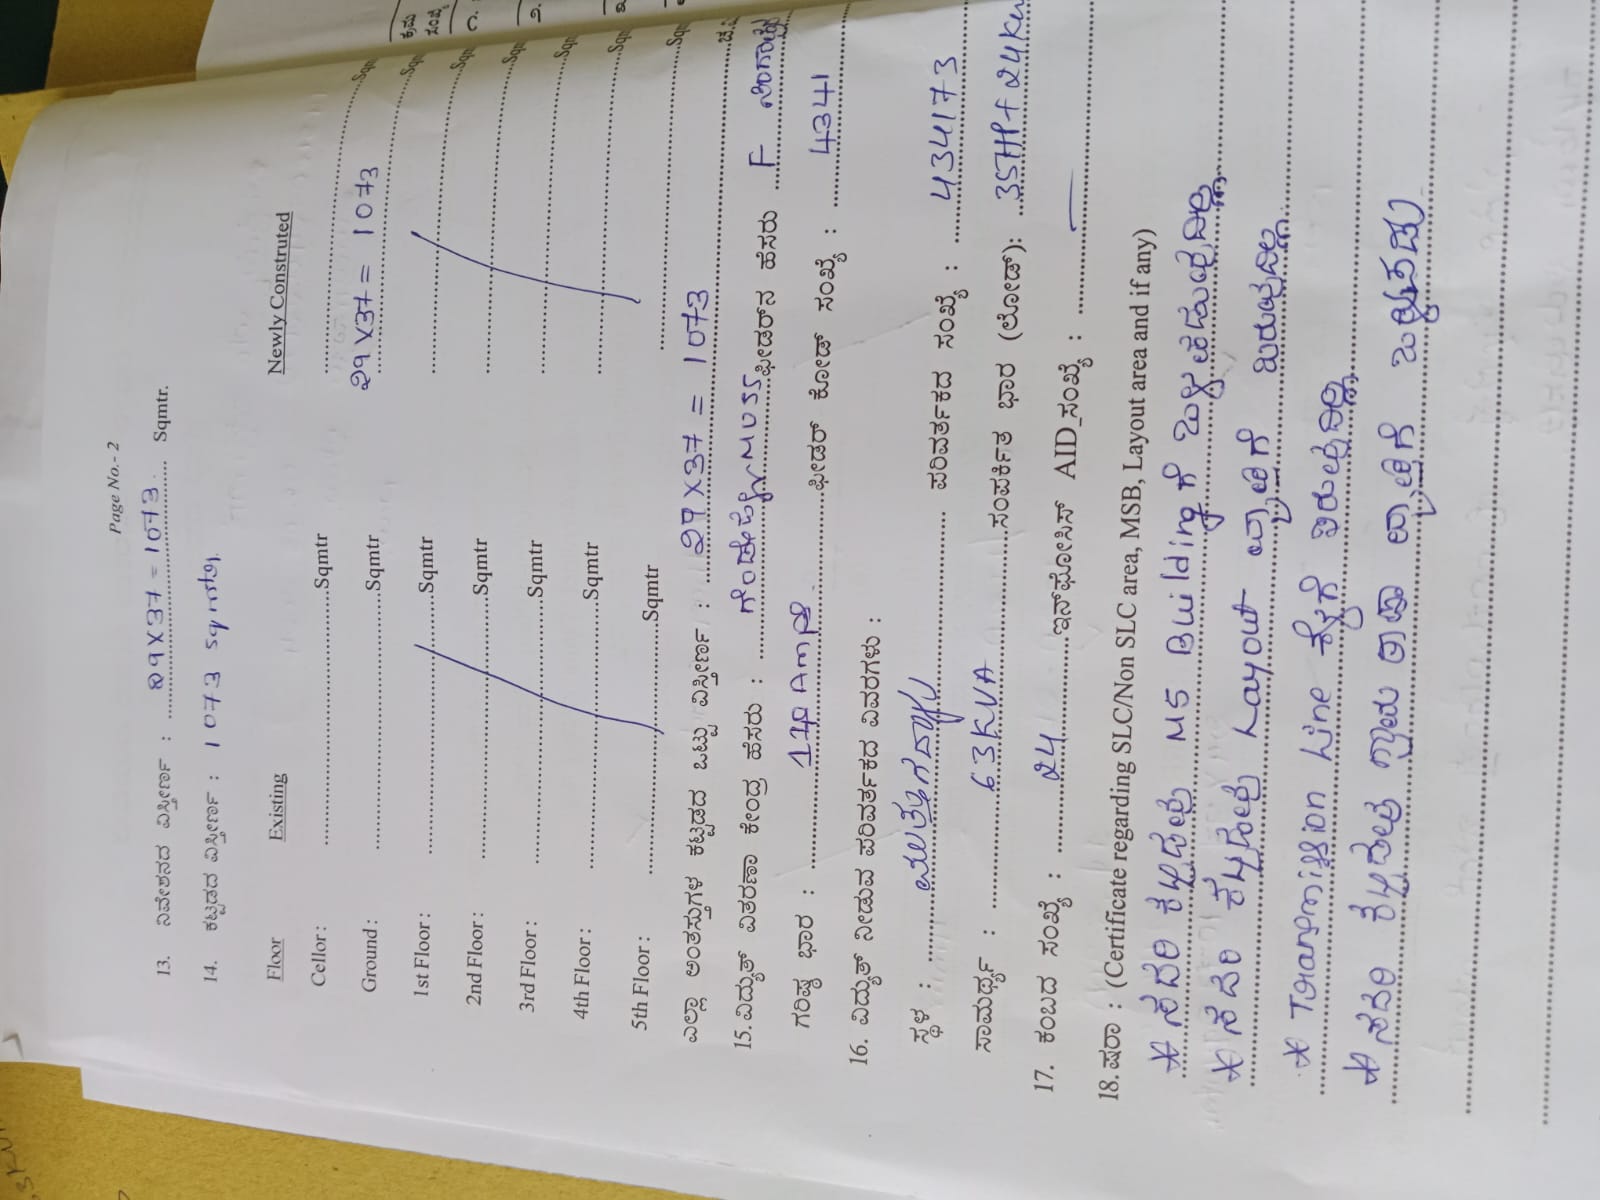 Page No.- 2
13. ನಿವೇಶನದ ವಿಸ್ತೀರ್ಣ : 29 X 37 = 1073 Sqmtr.
14. ಕಟ್ಟಡದ ವಿಸ್ತೀರ್ಣ : 1073
Floor Existing Newly Construted
Cellor : Sqmtr Sqm
Ground : Sqmtr 29 X 37 = 1073 Sqm
1st Floor : Sqmtr Sqm
2nd Floor : Sqmtr Sqm
3rd Floor : Sqmtr Sqm
4th Floor : Sqmtr Sqm
5th Floor : Sqmtr Sqm
ಎಲ್ಲಾ ಅಂತಸ್ತುಗಳ ಕಟ್ಟಡದ ಒಟ್ಟು ವಿಸ್ತೀರ್ಣ : 29 X 37 = 1073 ಚ.
15. ವಿದ್ಯುತ್ ವಿತರಣಾ ಕೇಂದ್ರ ಹೆಸರು : MUSS ಫೀಡರ್‌ನ ಹೆಸರು F
ಗರಿಷ್ಠ ಭಾರ : Amps ಫೀಡರ್ ಕೋಡ್ ಸಂಖ್ಯೆ : 4341
16. ವಿದ್ಯುತ್ ನೀಡುವ ಪರಿವರ್ತಕದ ವಿವರಗಳು :
ಸ್ಥಳ : ಪರಿವರ್ತಕದ ಸಂಖ್ಯೆ : 434173
ಸಾಮರ್ಥ್ಯ : 63 KVA ಸಂಪರ್ಕಿತ ಭಾರ (ಲೋಡ್): 35HP+24KW
17. ಕಂಬದ ಸಂಖ್ಯೆ : 24 ಇನ್‌ಫೋಸಿಸ್ AID_ಸಂಖ್ಯೆ : —
18. ಷರಾ : (Certificate regarding SLC/Non SLC area, MSB, Layout area and if any)
* ಸದರಿ ಕಟ್ಟಡವು MS Building ಗೆ ಒಳಪಡುವುದಿಲ್ಲ
* ಸದರಿ ಕಟ್ಟಡವು Layout ವ್ಯಾಪ್ತಿಗೆ ಬರುವುದಿಲ್ಲ
* Transmission Line ಕೆಳಗೆ ಇರುವುದಿಲ್ಲ
* ಸದರಿ ಕಟ್ಟಡವು ಗ್ರಾಮ ಠಾಣಾ ವ್ಯಾಪ್ತಿಗೆ ಒಳಪಡುವುದು